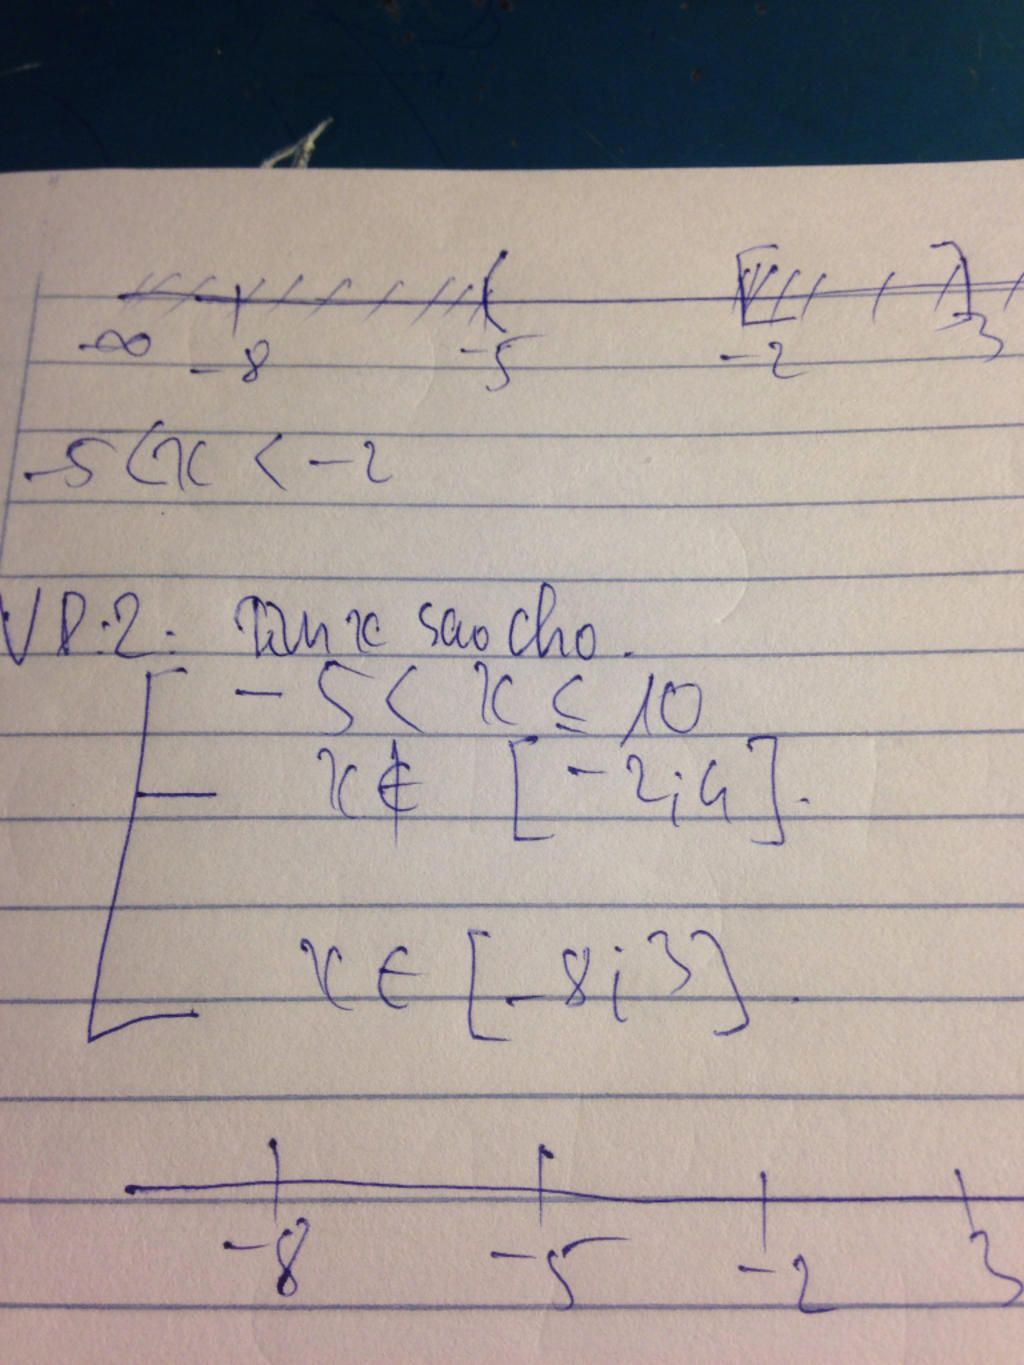 -∞ -8 -5 -2 3
-5 < x < -2
VD:2: Tìm x sao cho.
-5 < x ≤ 10
x ∉ [-2; 4].
x ∈ [-8; 3].
-8 -5 -2 3